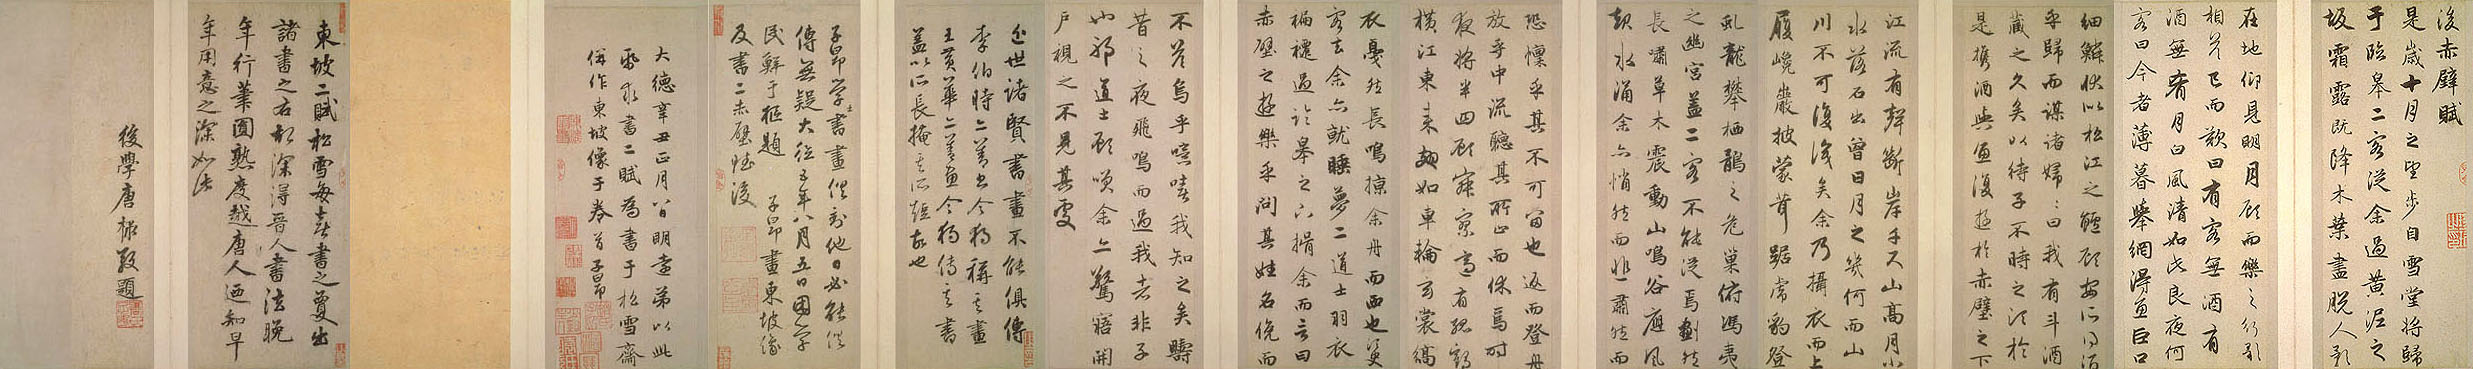 後赤壁賦
是歲十月之望步自雪堂將歸
于臨皋二客從余過黃泥之
坂霜露既降木葉盡脫人影
在地仰見明月顧而樂之行歌
相答已而歎曰有客無酒有
酒無肴月白風清如此良夜何
客曰今者薄暮舉網得魚巨口
細鱗狀似松江之鱸顧安所得酒
乎歸而謀諸婦婦曰我有斗酒
藏之久矣以待子不時之須於
是攜酒與魚復遊於赤壁之下
江流有聲斷岸千尺山高月小
水落石出曾日月之幾何而山
川不可復識矣余乃攝衣而上
履巉巖披蒙茸踞虎豹登
虬龍攀栖鶻之危巢俯馮夷
之幽宮蓋二客不能從焉劃然
長嘯草木震動山鳴谷應風
起水涌余亦悄然而悲肅然而
恐凜乎其不可留也返而登舟
放乎中流聽其所止而休焉時
夜將半四顧寂寥適有孤鶴
橫江東來翅如車輪玄裳縞
衣戛然長鳴掠余舟而西也須
客去余亦就睡夢二道士羽衣
蹁躚過臨皋之下揖余而言曰
赤壁之遊樂乎問其姓名俛而
不答嗚乎噫嘻我知之矣疇
昔之夜飛鳴而過我者非子
也邪道士顧笑余亦驚寤開
戶視之不見其處
近世諸賢書畫不能俱傳
李伯時亦善書今獨稱其畫
王黃華亦善畫今獨傳其書
蓋以所長掩其所短故也
子昂學士書畫俱到他日必能俱
傳無疑大德五年八月五日困學
民鮮于樞題 子昂畫東坡像
及書二赤壁賦後
大德辛丑正月八日明遠弟以此
紙求書二賦為書于松雪齋
併作東坡像于卷首子昂
東坡二賦松雪每喜書之夐出
諸書之右極深得晉人書法晚
年行筆圓熟度越唐人迺知早
年用意之深如此
後學唐棣敬題